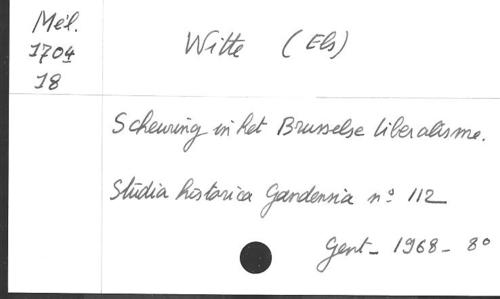 Mél.
1704
18
Witte (Els)
Scheuring in het Brusselse liberalisme.
Studia historica Gandensia nº 112
Gent - 1968 - 8º